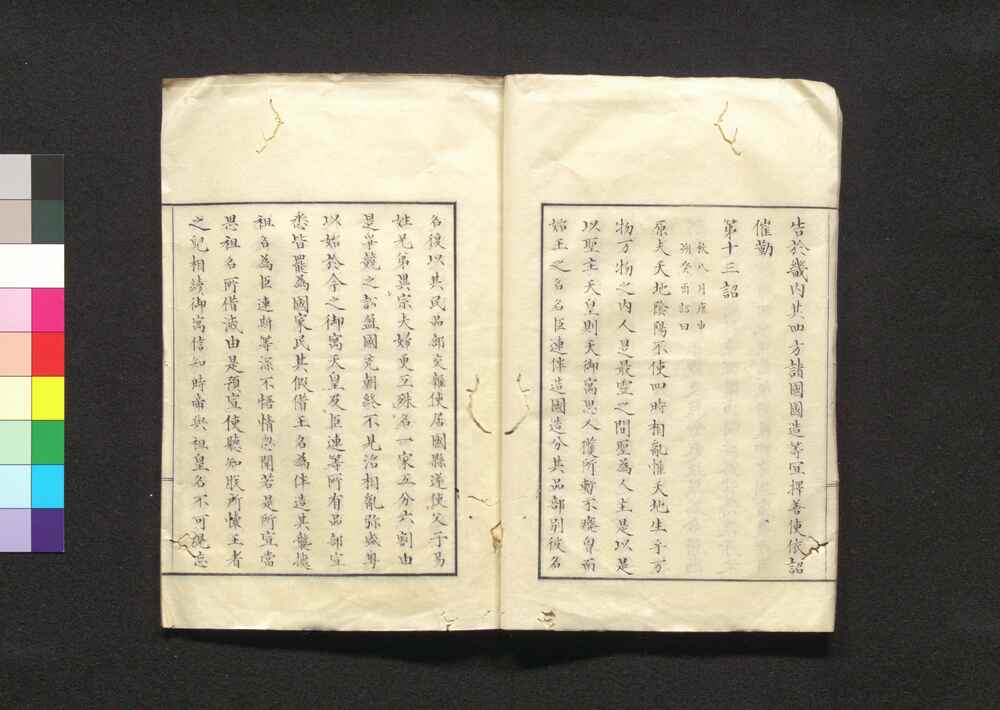 告於畿内其四方諸國國造等宜擇善使依詔
催勤
第十三詔
秋八月庚申
朔癸酉詔曰
原夫天地陰陽不使四時相亂惟天地生乎万
物万物之内人是最霊霊之間聖為人主是以
以聖主天皇則天御寓思人獲所暫不癈胷而
始王之名名臣連伴造國造分其品部別彼名
名復以其民品部交雜使居國縣遂使父子易
姓兄弟異宗夫婦更互殊名一家五分六割由
是爭競之訟盈國充朝終不見治相亂弥盛粤
以始於今之御寓天皇及臣連等所有品部宜
悉皆罷為國家民其假借王名為伴造其襲據
祖名為臣連斯等深不悟情忽聞若是所宣當
思祖名所借滅由是預宣使聽知朕所懐王者
之兒相續御寓信知時帝與祖皇名不可見忘